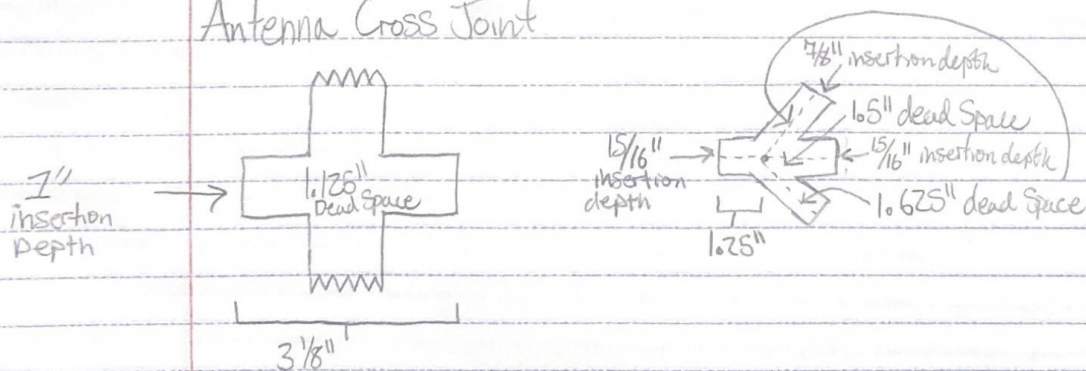 Antenna Cross Joint
1"
insertion
Depth
1.125"
Dead Space
3 1/8"
7/8" insertion depth
1.5" dead Space
15/16"
insertion
depth
15/16" insertion depth
1.625" dead Space
1.25"